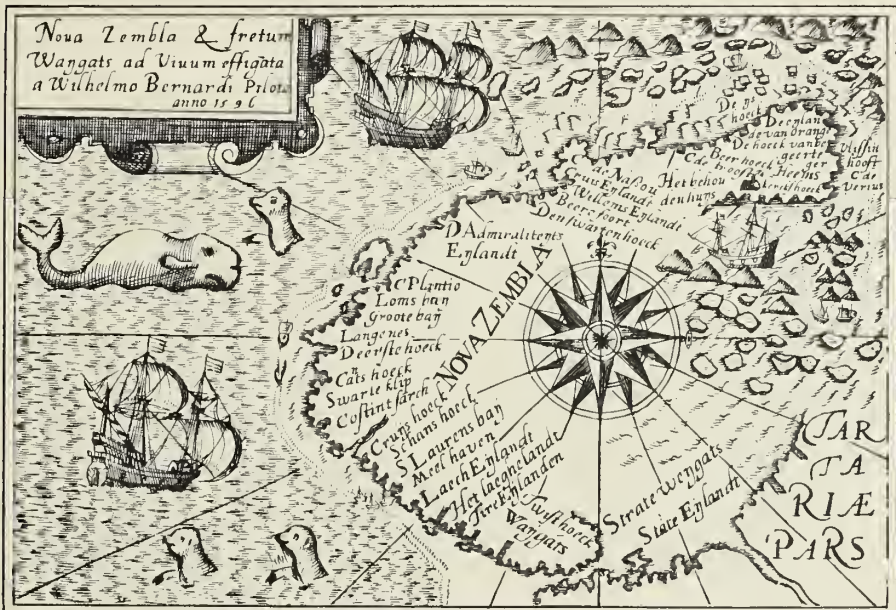 Nova Zembla & fretum
Waygats ad Vivum effigata
a Wilhelmo Bernardi Pilot
anno 1596
De ys
hoeck
De eylan
de van Orange
De hoeck van be
geerte
Beer hoeck
ger
Heems
kerck hoeck
Vlissin
hooft
C de
Het behou
den huys
C de Troost
de Naßou
Cruis Eylande
Willems Eylande
Beerefoort
Den swarten hoeck
D Admiraliteits
Eylandt
NOVA ZEMBLA
C Plantio
Loms bay
Groote bay
Langenes
Deerste hoeck
Cats hoeck
Swarte klip
Costint sarch
Cruys hoeck
Schans hoeck
S Laurens bay
Meel haven
Laech Eylandt
Het laeghe landt
Tire Eylanden
Twisthoeck
Waygats
Strate Weygats
State Eylandt
TAR
TA
RIÆ
PARS